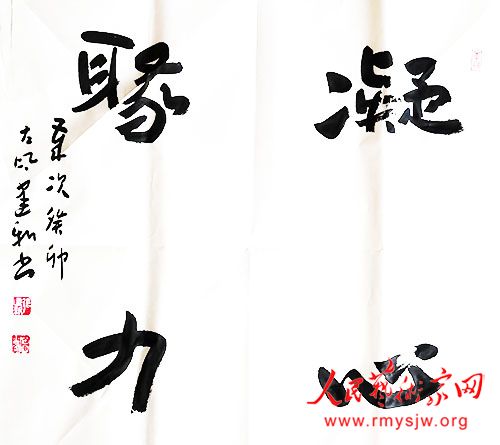 凝心
聚力
岁次癸卯
人民藝術家网
www.rmysjw.org